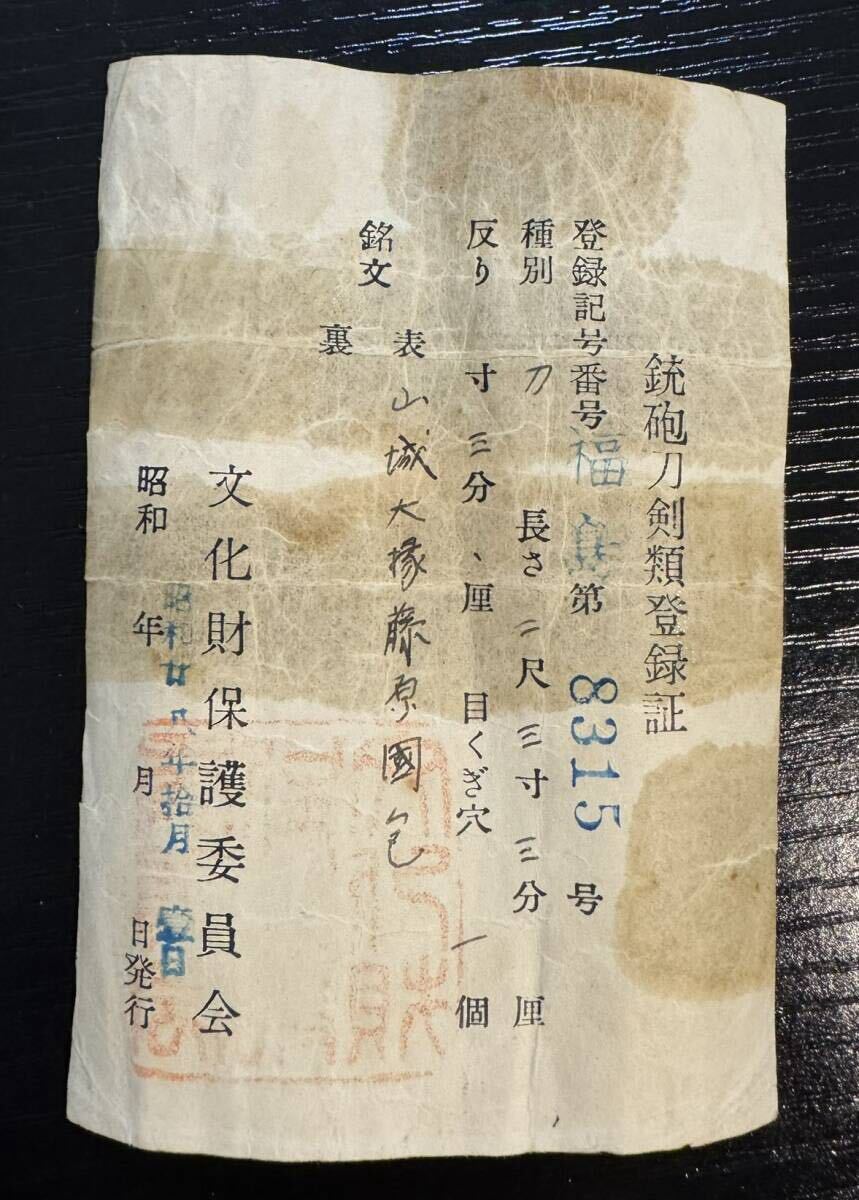 銃砲刀剣類登録証
登録記号番号 福島 第 8315 号
種別 刀 長さ 二尺 三寸 三分 厘
反り 寸 三分 、厘 目くぎ穴 一 個
銘文 表 山城大掾藤原國包
裏
文化財保護委員会
昭和 年 月 日発行
昭和廿八年拾月壹日